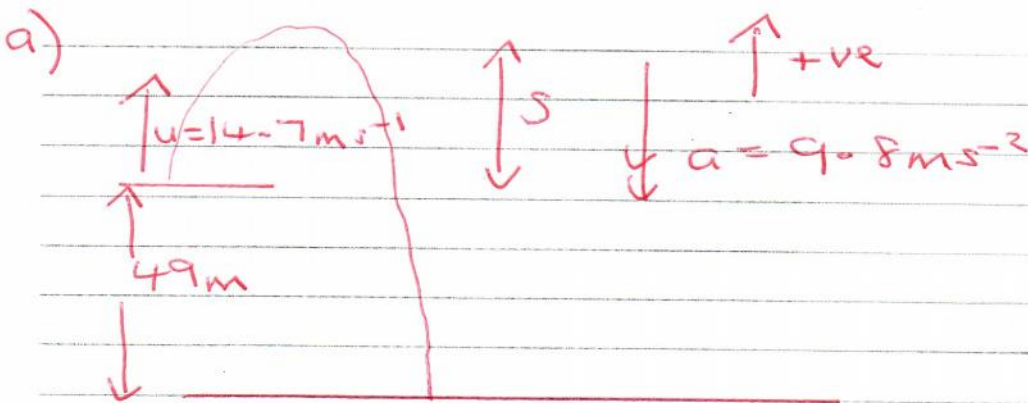 a)
↑ +ve
u = 14.7ms⁻¹
S
a = 9.8ms⁻²
49m